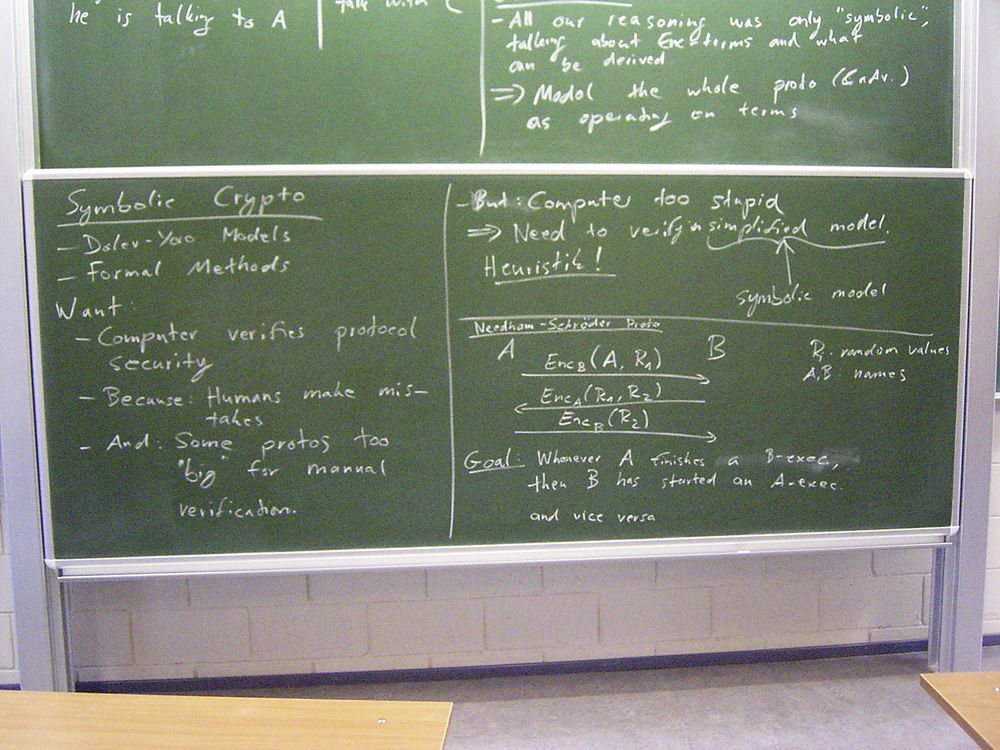 he is talking to A
talk with C
- All our reasoning was only "symbolic",
talking about Enc-terms and what
can be derived
=> Model the whole proto (& Adv.)
as operating on terms
Symbolic Crypto
- Dolev-Yao Models
- Formal Methods
Want:
- Computer verifies protocol
security
- Because: Humans make mis-
takes
- And: Some protos too
"big" for manual
verification.
- But: Computer too stupid
=> Need to verify in simplified model.
Heuristik!
symbolic model
Needham-Schröder Proto
A B
Enc_B(A, R_1)
Enc_A(R_1, R_2)
Enc_B(R_2)
R_i: random values
A,B: names
Goal: Whenever A finishes a B-exec,
then B has started an A-exec.
and vice versa